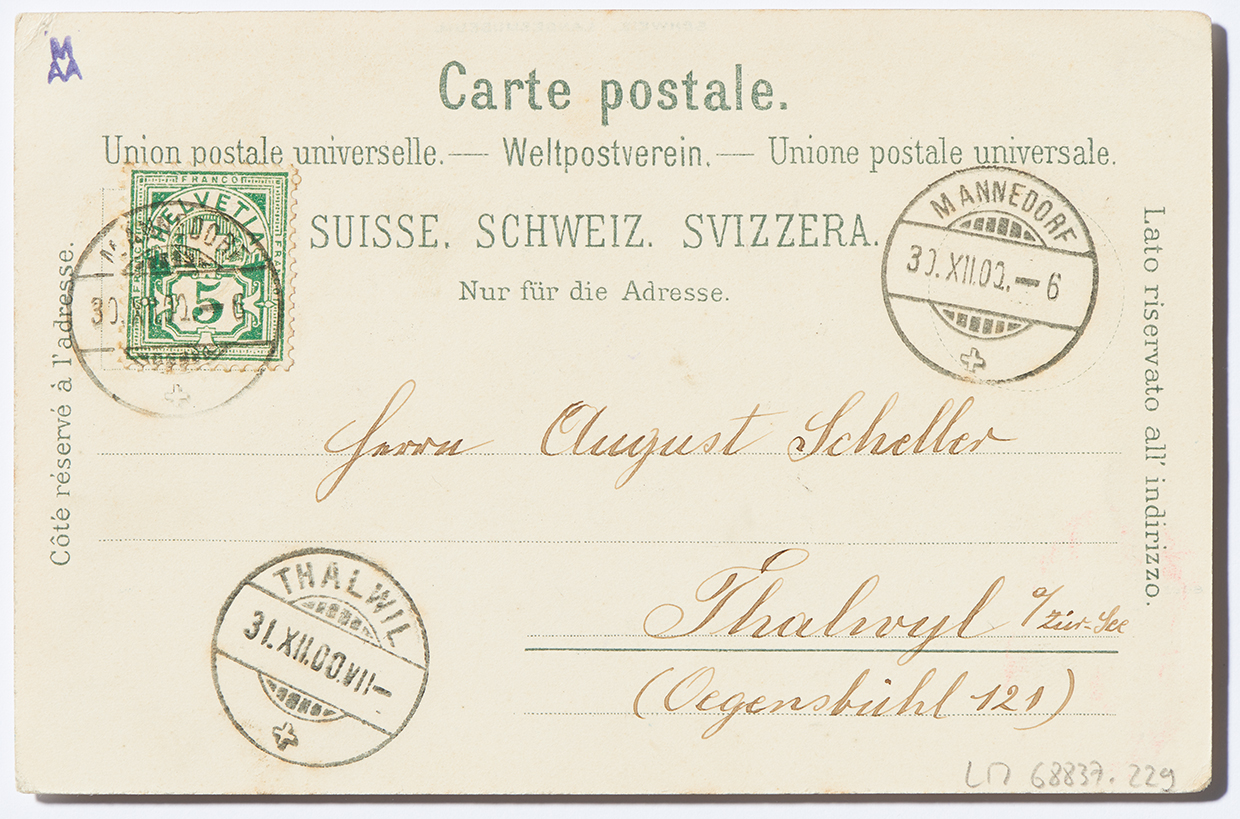 M
AA
Carte postale.
Union postale universelle. — Weltpostverein. — Unione postale universale.
SUISSE. SCHWEIZ. SVIZZERA.
Nur für die Adresse.
Côté réservé à l'adresse.
Lato riservato all' indirizzo.
FRANCO
HELVETIA
5
30.XII.00.-6
MÄNNEDORF
30.XII.00.-6
Herrn August Scheller
Thalwyl a/Zür-See
(Oegensbühl 121)
THALWIL
31.XII.00.VII-
LM 68837.229